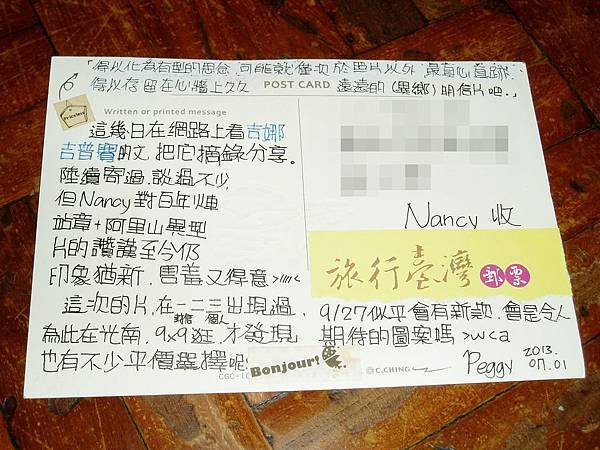 「得以化為有型的思念,可能就僅次於照片以外,最真心真跡,
得以存留在心牆上久久 遠遠的(異鄉)明信片吧。」
POST CARD
Priceless
Written or printed message
這幾日在網路上看吉娜
吉普賽的文,把它摘錄分享。
陸續寄過,談過不少,
但Nancy對百年煙
站章+阿里山異型
片的讚謹至今仍
印象猶新,害羞又得意>////<
這次的片,在一二三出現過,
個人
為此在光南,9x9逛,才發現
也有不少平價選擇呢
Bonjour!
CGC-10
©C.CHING
Nancy 收
旅行臺灣 郵票
9/27似乎會有新款,會是令人
期待的圖案嗎 >wca
Peggy 2013.
07.01